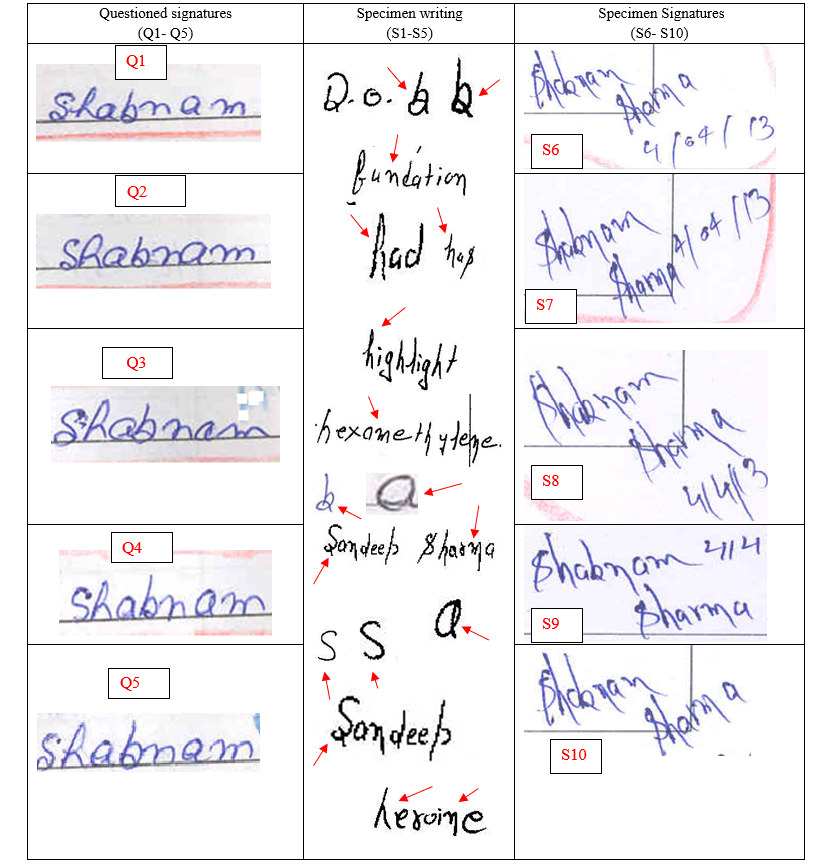 Questioned signatures
(Q1- Q5)
Specimen writing
(S1-S5)
Specimen Signatures
(S6- S10)
Q1
Shabnam
Q2
Shabnam
Q3
Shabnam
Q4
Shabnam
Q5
Shabnam
D.o. b b
fundation
had has
highlight
hexomethylene.
b a
Sandeep Sharma
S S a
Sandeep
heroine
Shabnam
Sharma
4/04/13
S6
Shabnam 4/04/13
Sharma
S7
Shabnam
Sharma
4/4/13
S8
Shabnam 4/4
Sharma
S9
Shabnam
Sharma
S10